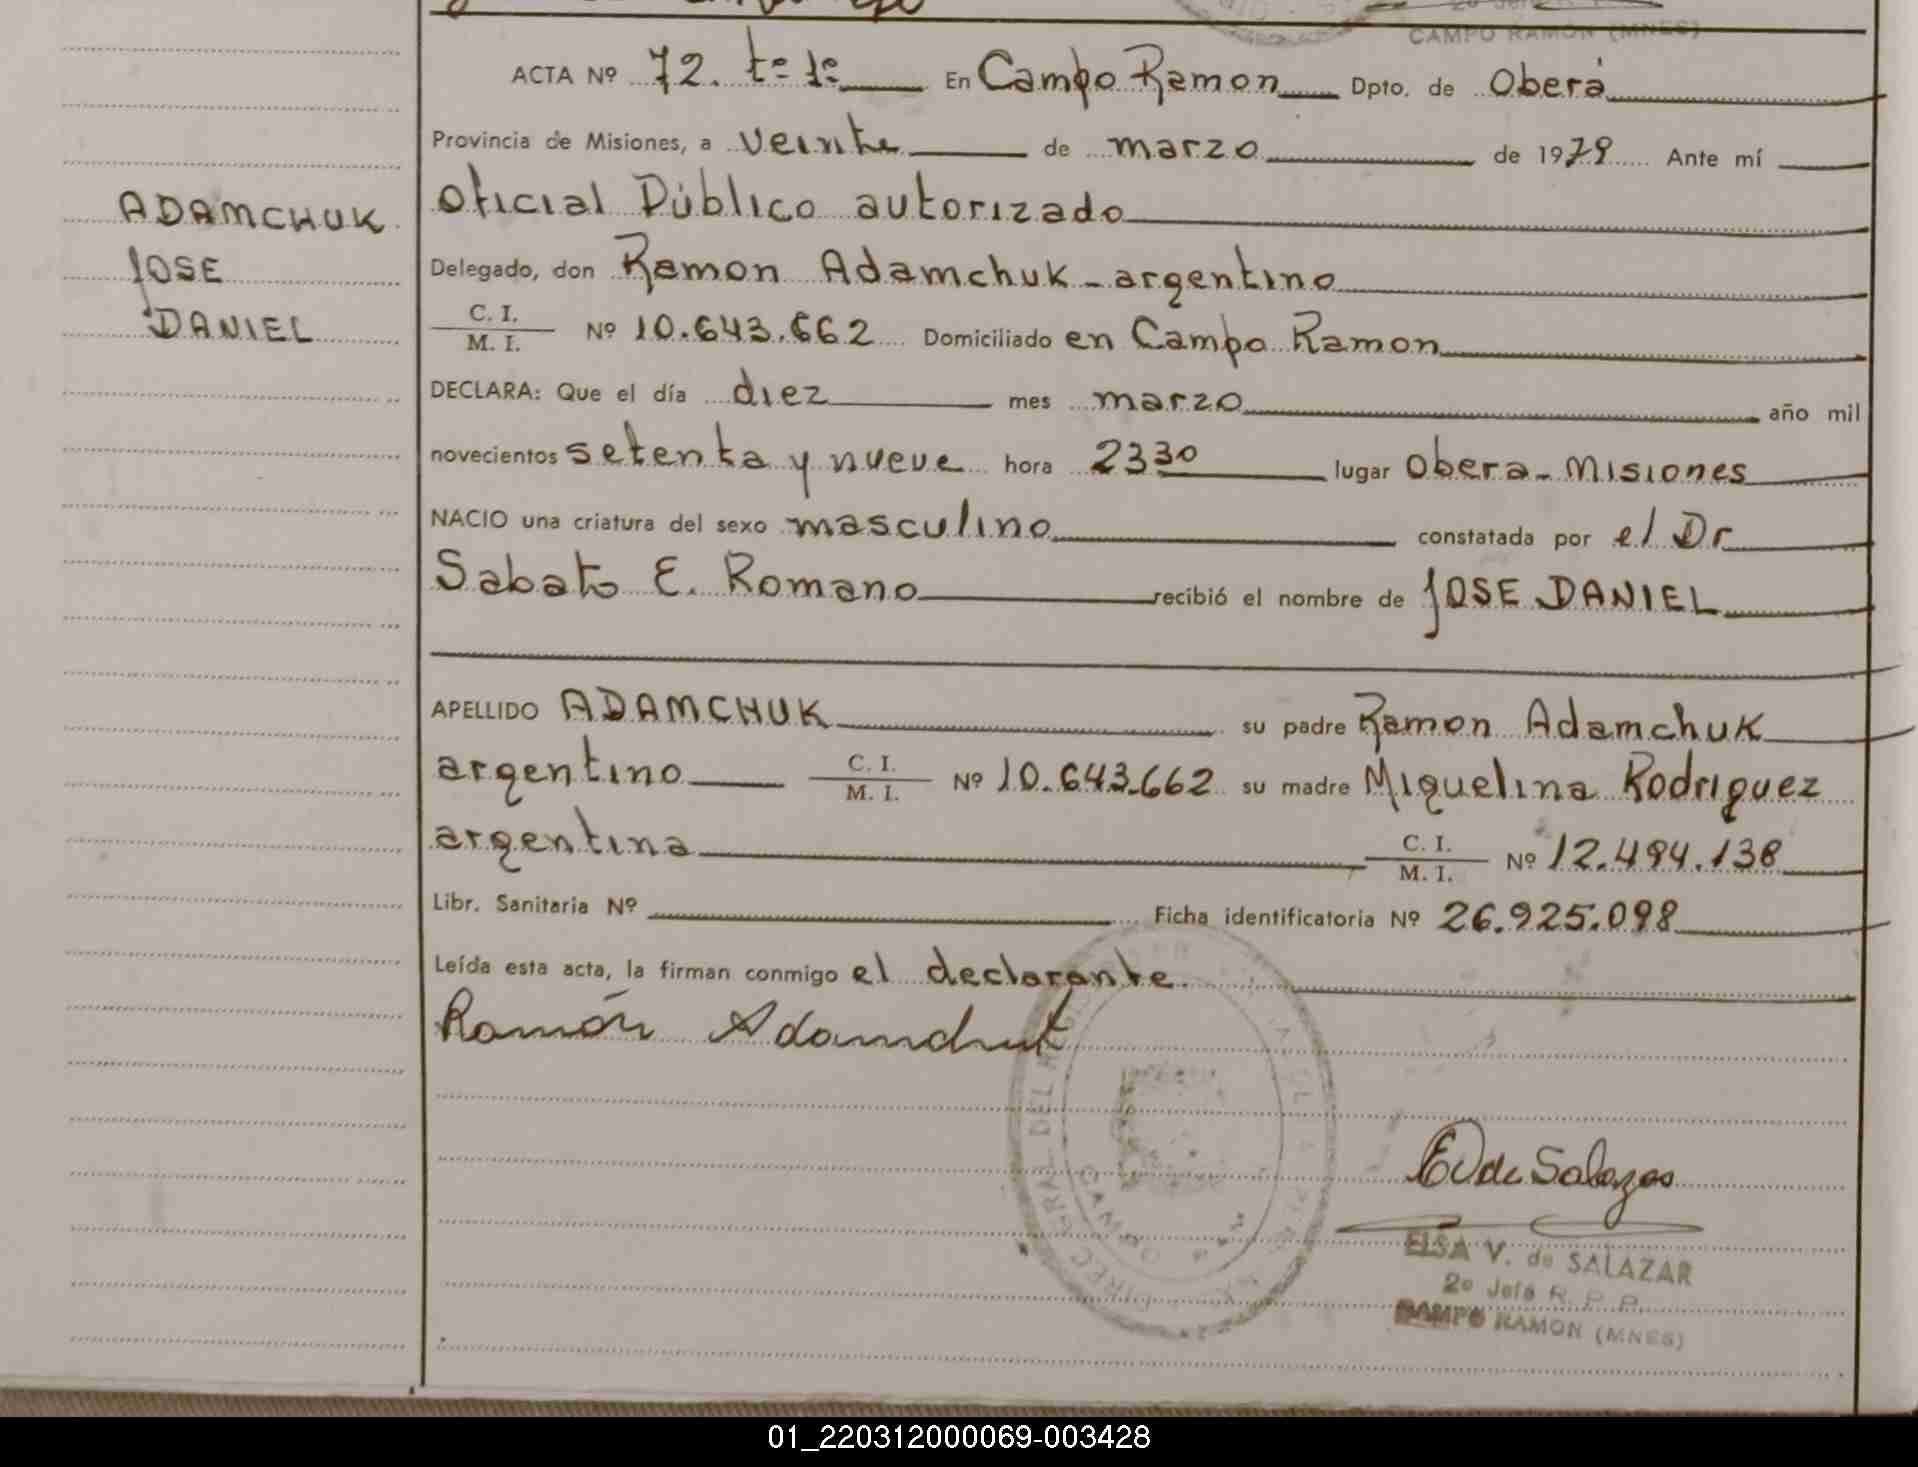 CAMPO RAMON (MNES)
ACTA Nº 72. tº 1º En Campo Ramon Dpto. de Oberá
Provincia de Misiones, a veinte de marzo de 1979 Ante mí
oficial Público autorizado
ADAMCHUK
JOSE
DANIEL
Delegado, don Ramon Adamchuk - argentino
C. I.
M. I. Nº 10.643.662 Domiciliado en Campo Ramon
DECLARA: Que el día diez mes marzo año mil
novecientos setenta y nueve hora 2330 lugar Obera - Misiones
NACIO una criatura del sexo masculino constatada por el Dr
Sabato E. Romano recibió el nombre de JOSE DANIEL
APELLIDO ADAMCHUK su padre Ramon Adamchuk
argentino C. I. M. I. Nº 10.643.662 su madre Miquelina Rodriguez
argentina C. I. M. I. Nº 12.494.138
Libr. Sanitaria Nº Ficha identificatoria Nº 26.925.098
Leída esta acta, la firman conmigo el declarante.
Ramón Adamchuk
DIREC. GRAL. DEL REGISTRO
E V de Salazar
ELSA V. de SALAZAR
2º Jefe R. P. P.
CAMPO RAMON (MNES)
01_220312000069-003428